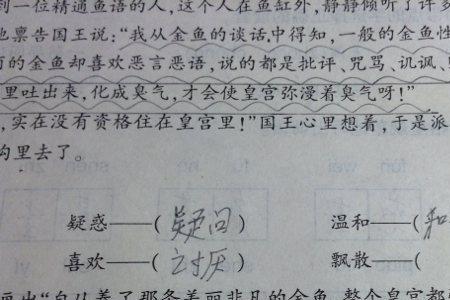 到一位精通鱼语的人，这个人在鱼缸外，静静倾听了许多
他禀告国王说：“我从金鱼的谈话中得知，一般的金鱼性
的金鱼却喜欢恶言恶语，说的都是批评、咒骂、讥讽、
里吐出来，化成臭气，才会使皇宫弥漫着臭气呀！”
，实在没有资格住在皇宫里！”国王心里想着，于是派
沟里去了。
疑惑——( 疑问 ) 温和——( 和
喜欢——( 讨厌 ) 飘散——(
画出“自从养了那条美丽非凡的金鱼，整个皇宫都